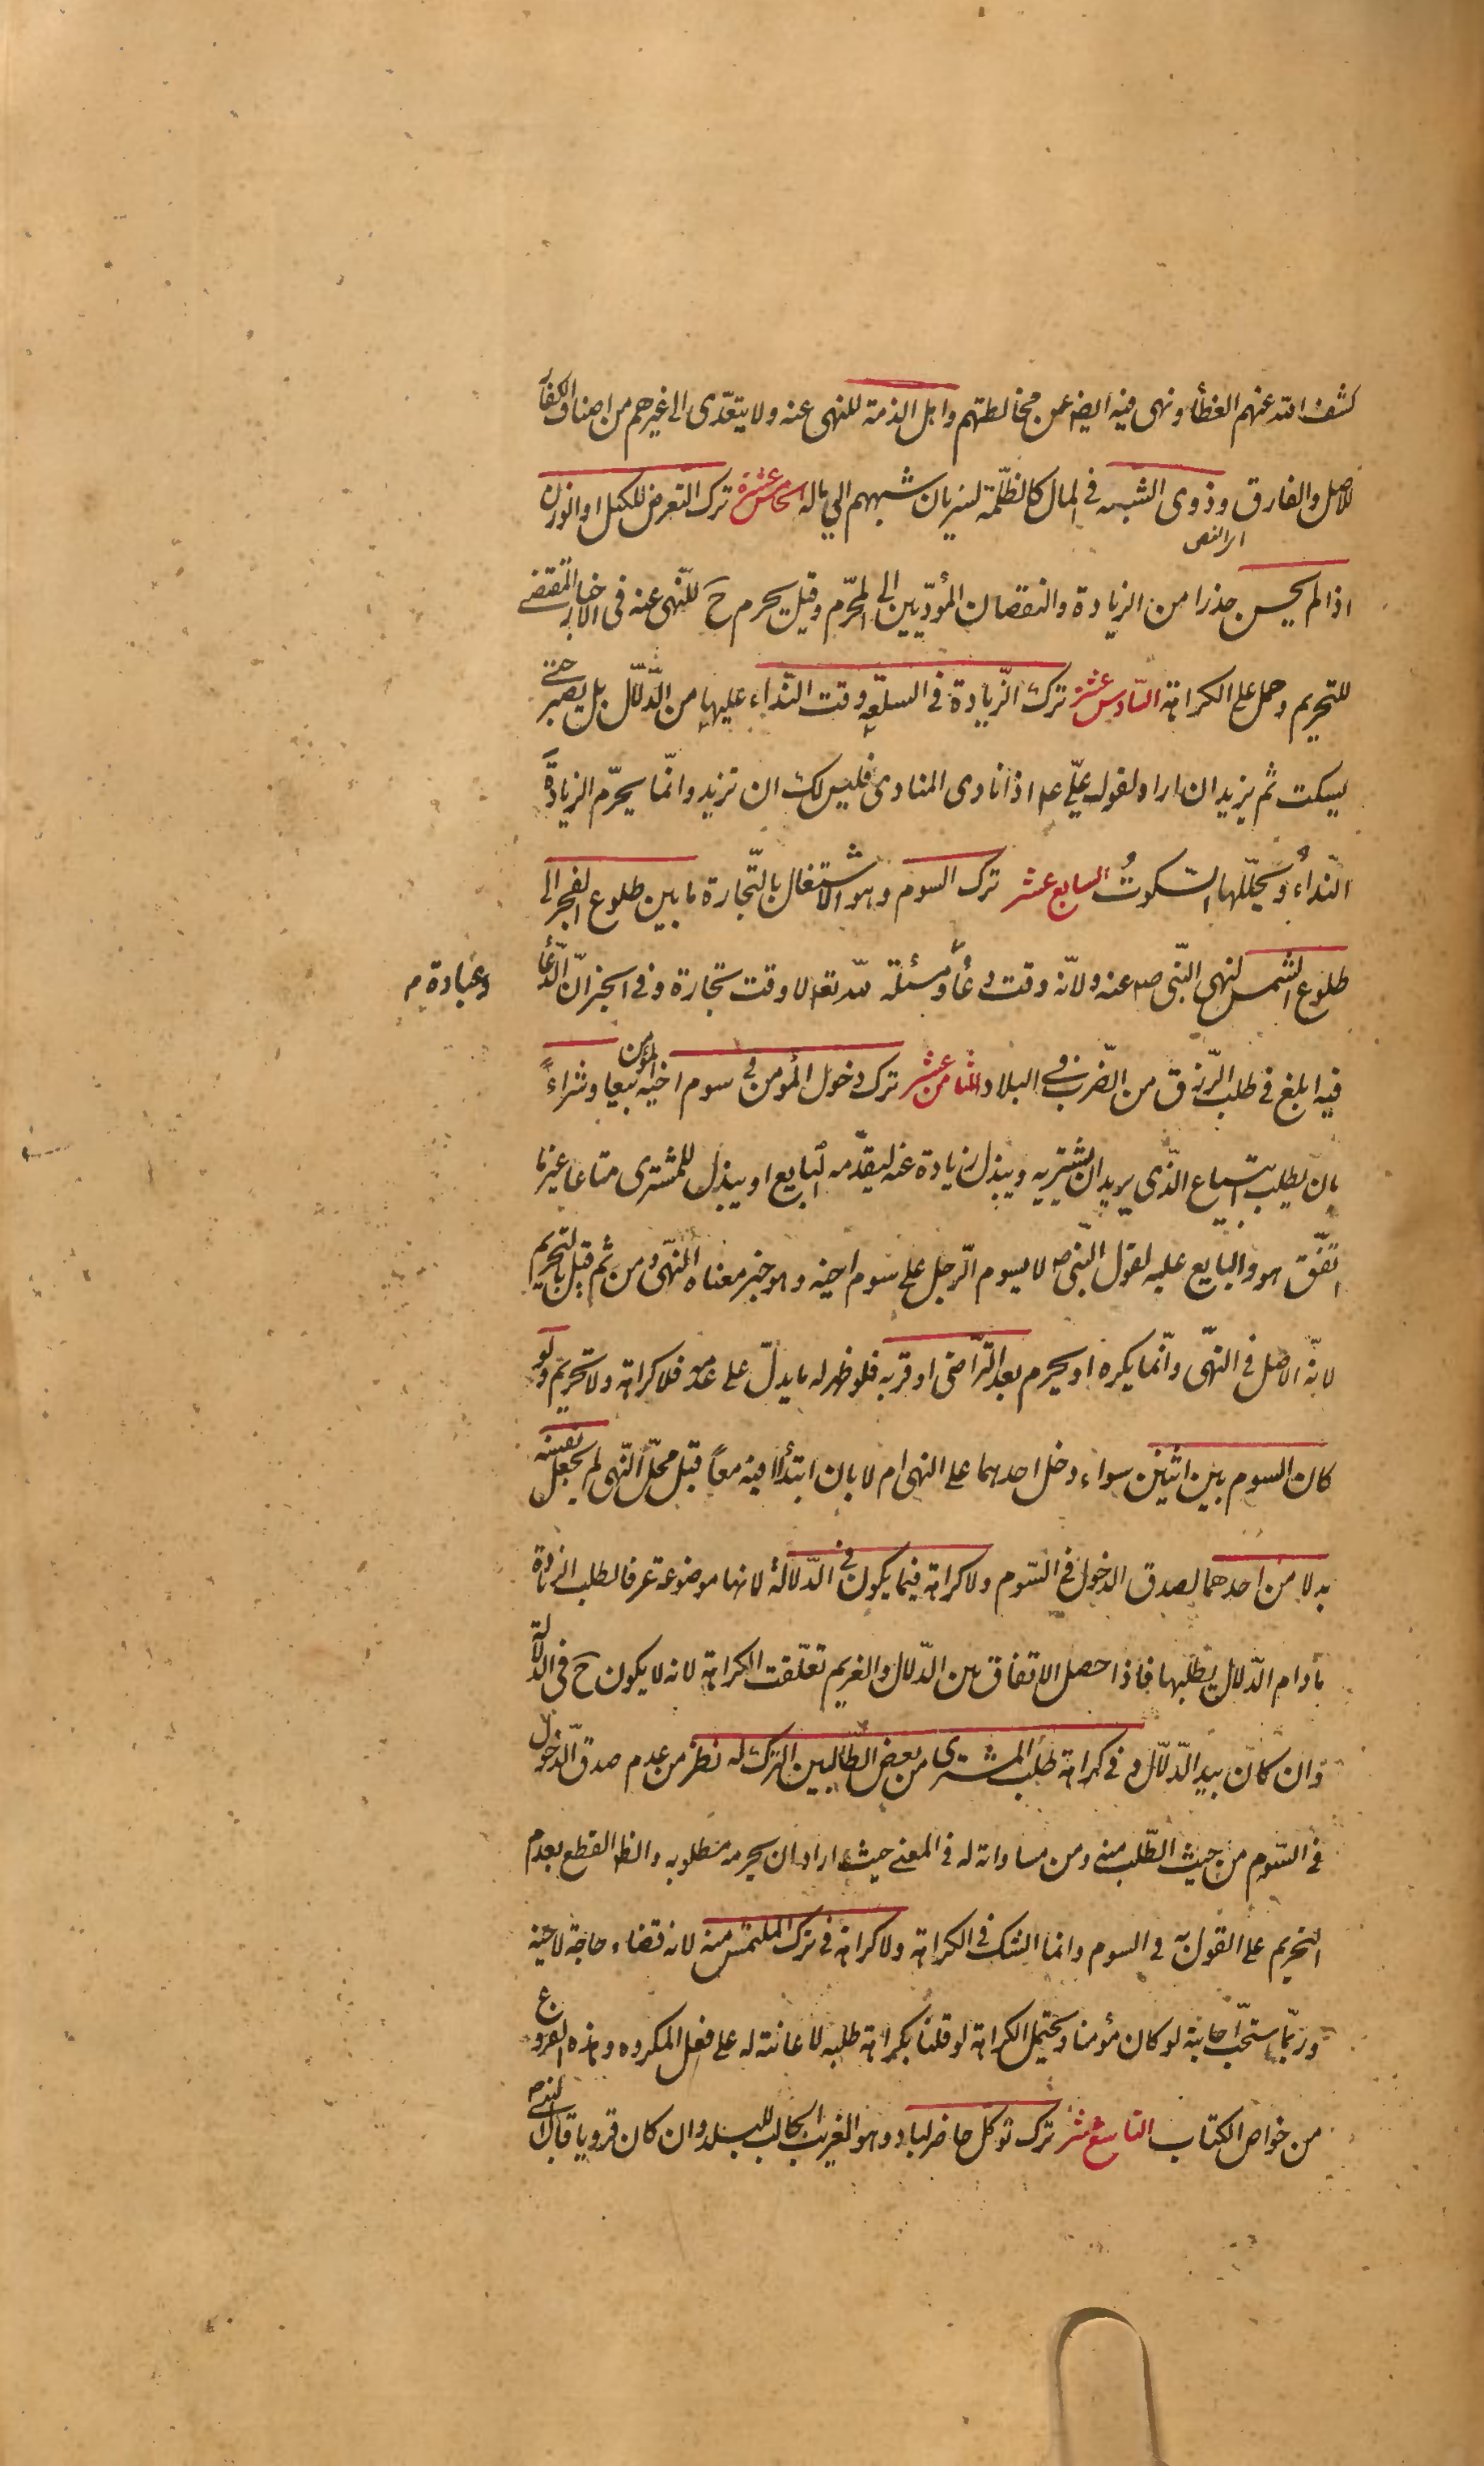 كشف الله عنهم الغطأ ونهى فيه ايض عن مخالطتهم واهل الذمة للنهى عنه ولا يتعدّى الى غيرهم من اصناف الكفار
للاصل والفارق وذوى الشبهه فى المال كالظلمة لسريان شبههم الى ماله الخامس عشر ترك التعرض للكيل او الوزن
اى النقص
اذا لم يحسن حذرا من الزيادة والنقصان المؤدّيين الى المحرّم وقيل يحرم ح للنّهى عنه فى الاخبار المقتضى
للتحريم وحمل على الكراهة السّادس عشر ترك الزّيادة فى السلعة وقت النّداء عليها من الدّلّال بل يصبر حتى
يسكت ثم يزيد ان اراد لقول علىّ ع اذا نادى المنادى فليس لك ان تزيد وانّما يحرّم الزيادة
النّداءُ ويحلّلها السّكوتُ السابع عشر ترك السوم وهو الاشتغال بالتّجارة ما بين طلوع الفجر الى
طلوع الشمس لنهى النّبى ص عنه ولانّه وقت دعاء ومسئلة لله تعه لا وقت تجارة وفى الخبر انّ الدّعا
وعبادة م
فيه ابلغ فى طلب الرّزق من الضّرب فى البلاد الثامن عشر ترك دخول المؤمن فى سوم اخيه المؤمن بيعا وشراءً
بان يطلب ابتياع الذّى يريد ان يشتريه ويبذل زيادة عنه ليقدّمه البايع او يبذل للمشترى متاعا غير ما
اتّفق هو والبايع عليه لقول النّبى ص لا يسوم الرّجل على سوم اخيه وهو خبر معناه النّهى ومن ثم قيل بالتحريم
لانّه الاصل فى النّهى وانّما يكره او يحرم بعد التّراضى او قربه فلو ظهر له ما يدلّ على عدمه فلا كراهة ولا تحريم ولو
كان السوم بين اثنين سواء دخل احدهما على النهى ام لا بان ابتدأا فيه معاً قبل محلّ النّهى لم يجعل نفسه
بدلا من احدهما لصدق الدخول فى السّوم ولا كراهة فيما يكون فى الدّلالة لانها موضوعة عرفا لطلب الزيادة
ما دام الدّلال يطلبها فاذا حصل الاتفاق بين الدّلال والغريم تعلّقت الكراهة لانه لا يكون ح فى الدّلالة
وان كان بيد الدّلال وفى كراهة طلب المشترى من بعض الطّالبين الترك له نظر من عدم صدق الدّخول
فى السّوم من حيث الطّلب منه ومن مساواته له فى المعنى حيث اراد ان يحرمه مطلوبه والظ القطع بعدم
التحريم على القول به فى السوم وانما الشك فى الكراهة ولا كراهة فى ترك الملتمس منه لانه قضاء حاجة لاخيه
وربّما استحبّ اجابته لو كان مؤمنا ويحتمل الكراهة لو قلنا بكراهة طلبه لاعانته له على فعل المكروه وهذه الفروع
من خواص الكتاب التاسع عشر ترك توكل حاضر لباد وهو الغريب الجالب للبلد وان كان قرويا قال النبى ص